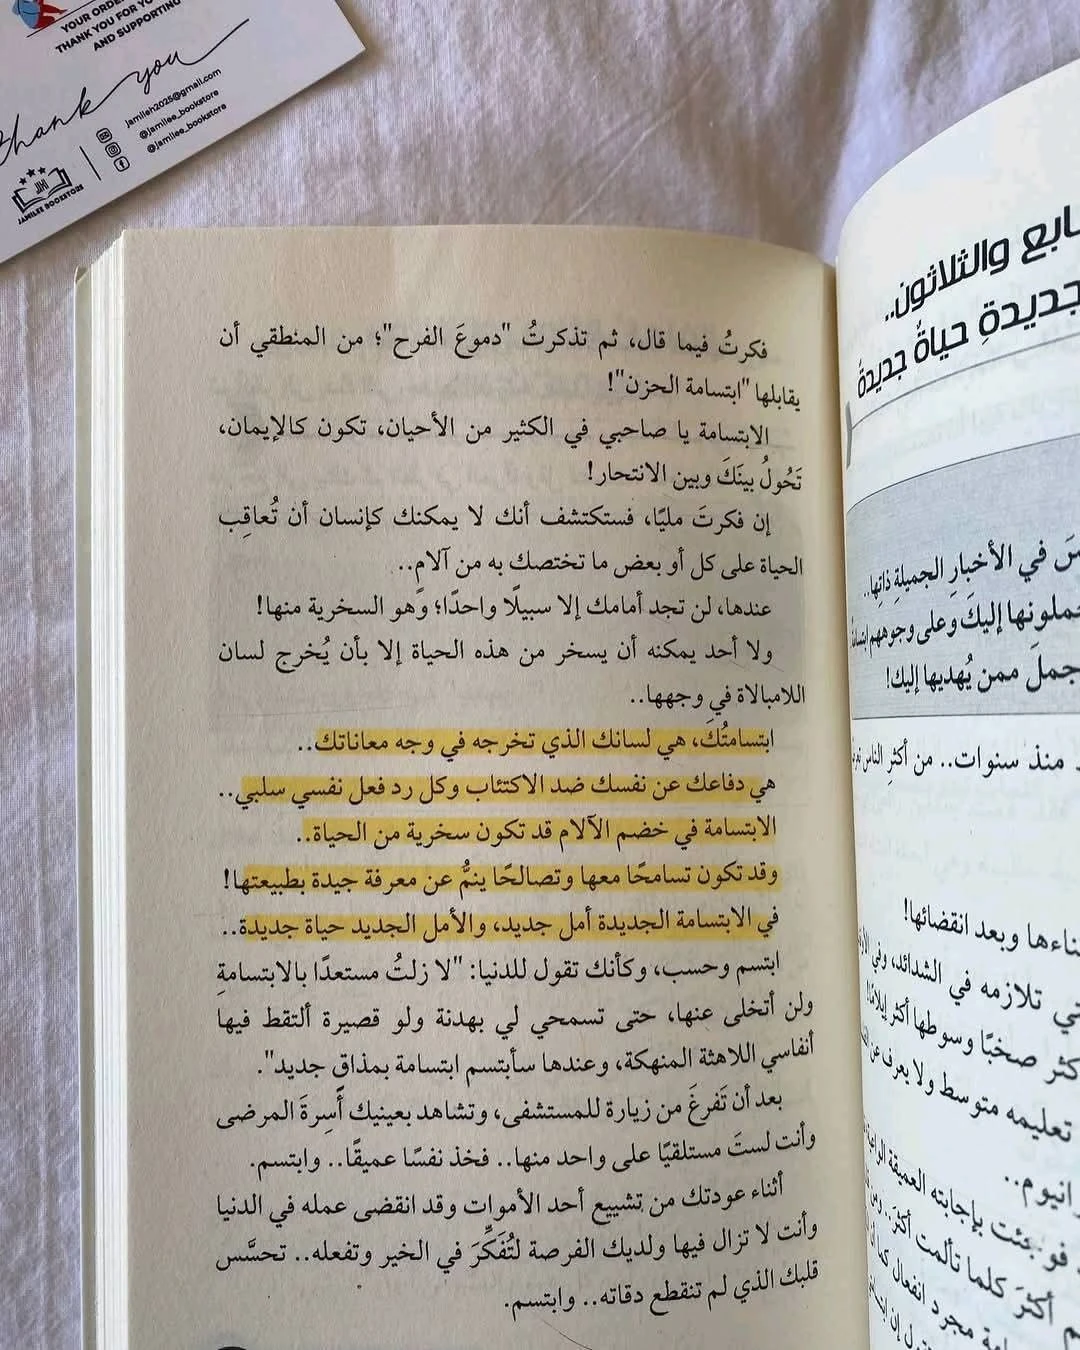 YOUR ORDER
THANK YOU FOR YO
AND SUPPORTING
Thank you
jamileh2025@gmail.com
@jamilee_bookstore
@jamilee_bookstore
JAMILEE BOOKSTORE
فكرتُ فيما قال، ثم تذكرتُ "دموعَ الفرح"؛ من المنطقي أن
يقابلها "ابتسامة الحزن"!
الابتسامة يا صاحبي في الكثير من الأحيان، تكون كالإيمان،
تَحُولُ بينَكَ وبين الانتحار!
إن فكرتَ مليًا، فستكتشف أنك لا يمكنك كإنسان أن تُعاقِب
الحياة على كل أو بعض ما تختصك به من آلامٍ..
عندها، لن تجد أمامك إلا سبيلًا واحدًا؛ وهو السخرية منها!
ولا أحد يمكنه أن يسخر من هذه الحياة إلا بأن يُخرج لسان
اللامبالاة في وجهها..
ابتسامتُكَ، هي لسانك الذي تخرجه في وجه معاناتك..
هي دفاعك عن نفسك ضد الاكتئاب وكل رد فعل نفسي سلبي..
الابتسامة في خضم الآلام قد تكون سخرية من الحياة..
وقد تكون تسامحًا معها وتصالحًا ينمُّ عن معرفة جيدة بطبيعتها!
في الابتسامة الجديدة أمل جديد، والأمل الجديد حياة جديدة..
ابتسم وحسب، وكأنك تقول للدنيا: "لا زلتُ مستعدًا بالابتسامةِ
ولن أتخلى عنها، حتى تسمحي لي بهدنة ولو قصيرة ألتقط فيها
أنفاسي اللاهثة المنهكة، وعندها سأبتسم ابتسامة بمذاقٍ جديد".
بعد أن تَفرغَ من زيارة للمستشفى، وتشاهد بعينيك أَسِرةَ المرضى
وأنت لستَ مستلقيًا على واحد منها.. فخذ نفسًا عميقًا.. وابتسم.
أثناء عودتك من تشييع أحد الأموات وقد انقضى عمله في الدنيا
وأنت لا تزال فيها ولديك الفرصة لتُفَكِّرَ في الخير وتفعله.. تحسَّس
قلبك الذي لم تنقطع دقاته.. وابتسم.
والثلاثون..
جديدةِ حياةٌ جديدةٌ
في الأخبارِ الجميلةِ ذاتِها..
إليكَ وعلى وجوههم
ممن يُهديها إليك!
منذ سنوات.. من أكثرِ الناس
وبعد انقضائها!
تلازمه في الشدائد، وفي
صخبًا وسوطها أكثر إيلامًا!
تعليمه متوسط ولا يعرف عن
بإجابته العميقة
أكثرَ كلما تألمت أكثرَ..
مجرد انفعال كما